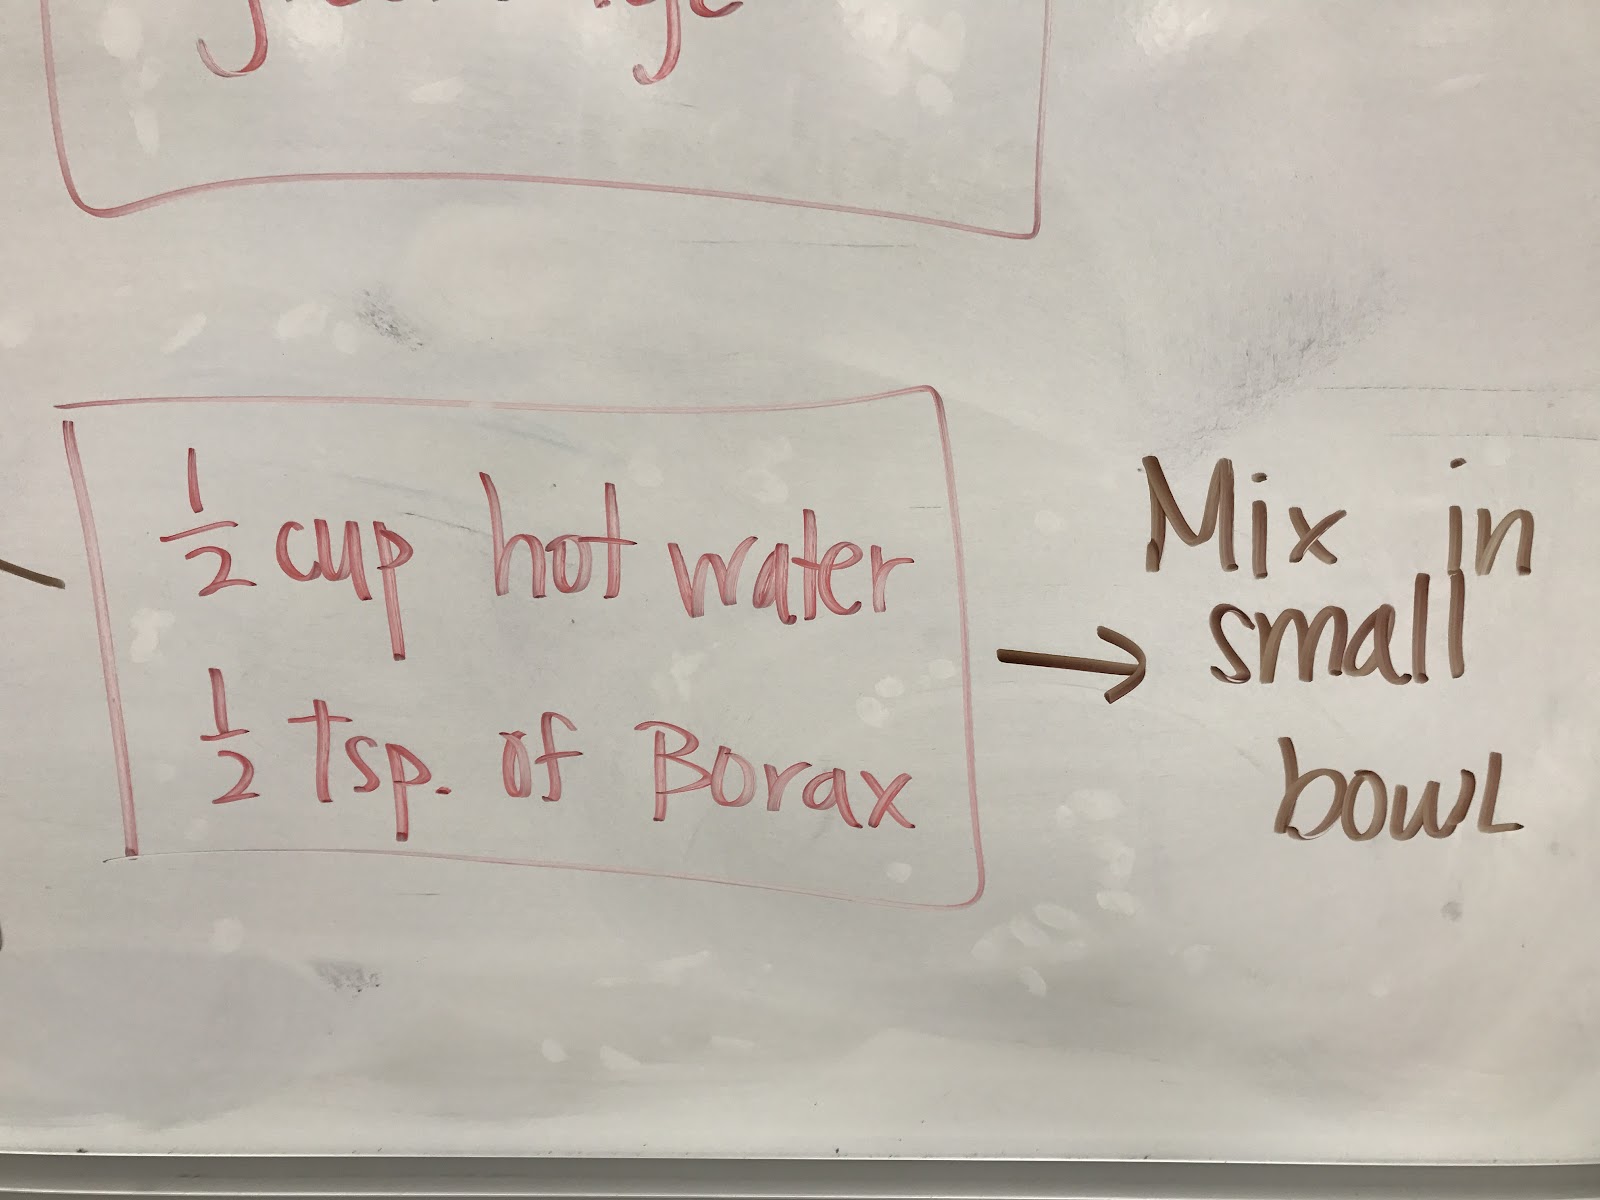 ½ cup hot water
½ Tsp. of Borax
→ Mix in
small
bowl